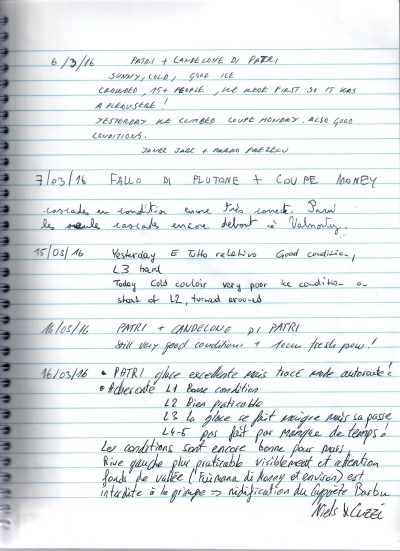 6/3/16 PATRI + CANDELONE DI PATRI
SUNNY, COLD, GOOD ICE
CROWDED, 15+ PEOPLE, WE WERE FIRST SO IT WAS
A PLEASURE!
YESTERDAY WE CLIMBED COUPE MONDAY. ALSO GOOD
CONDITIONS.
JANEZ + MARKO PREZELJ
7/03/16 FALLO DI PLUTONE + COUPE MONEY
cascades en condition encore très correcte. Parmi
les seule cascades encore debout à Valnontey.
15/03/16 Yesterday E Tutto relativo Good condition,
L3 hard
Today Cold couloir very poor ice condition
start of L2, turned around
16/03/16 PATRI + CANDELONE DI PATRI
Still very good conditions + 10cm fresh pow!
16/03/16 • PATRI glace excellente mais TRACE mode autoroute!
• L1 Bonne condition
L2 Bien praticable
L3 la glace se fait maigre mais sa passe
L4-5 pas fait par manque de temps!
Les conditions sont encore bonne pour mars,
Rive gauche plus praticable visiblement et attention
fonds de vallée ( de Money et environ) est
interdite à la grimpe => nidification du Gypaète Barbu
Niels &